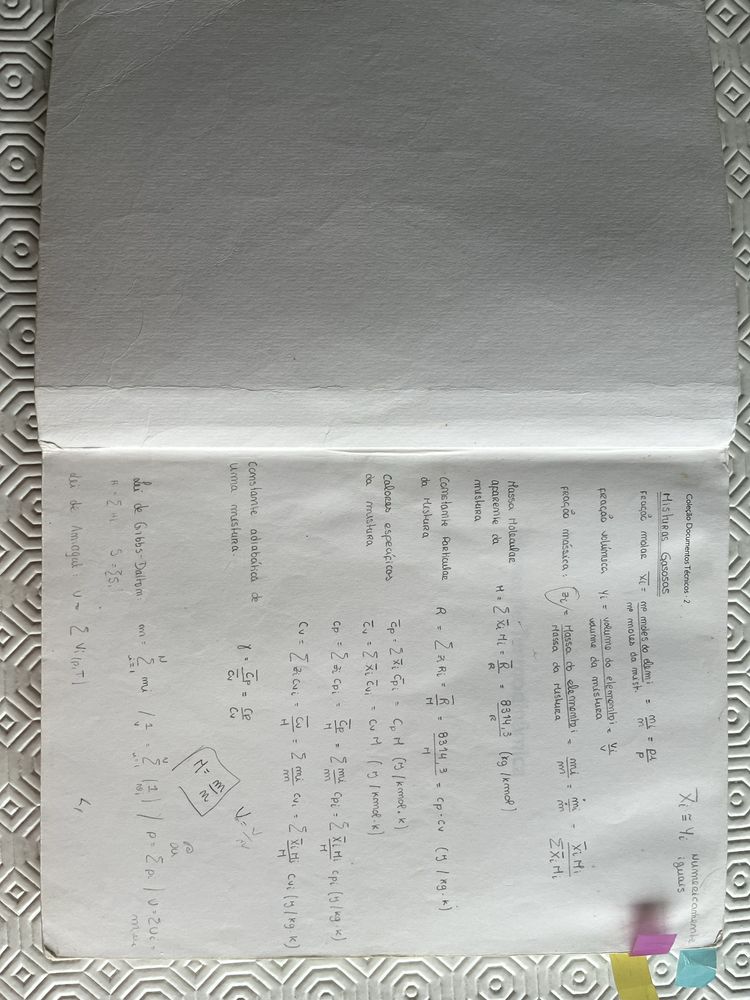 Coleção Documentos Técnicos - 2
Misturas Gasosas
Fração molar X̄i = nº moles do elem i / nº moles da mist. = ni / n = pi / p
X̄i ≅ Yi Numericamente iguais
Fração volúmica Yi = volume do elemento i / volume da mistura = Vi / V
Fração mássica: zi = Massa do elemento i / Massa da mistura = mi / m = ṁi / ṁ = X̄i Mi / Σ X̄i Mi
Massa Molecular
aparente da
mistura
M = Σ X̄i Mi = R̄ / R = 8314,3 / R (kg/kmol)
Constante Particular
da Mistura
R = Σ zi Ri = R̄ / M = 8314,3 / M = cp - cv (J/kg.K)
Calores específicos
da mistura
c̄p = Σ X̄i c̄pi = cp M (J/kmol.K)
c̄v = Σ X̄i c̄vi = cv M (J/kmol.K)
cp = Σ zi cpi = c̄p / M = Σ mi / m cpi = Σ X̄i Mi / M cpi (J/kg.K)
cv = Σ zi cvi = c̄v / M = Σ mi / m cvi = Σ X̄i Mi / M cvi (J/kg.K)
Constante adiabática de
uma mistura:
γ = c̄p / c̄v = cp / cv
M = m / n
Lei de Gibbs-Dalton: m = Σ mi / p = Σ pi / U = Σ Ui
H = Σ Hi S = Σ Si
ou
Lei de Amagat V = Σ Vi (p,T)